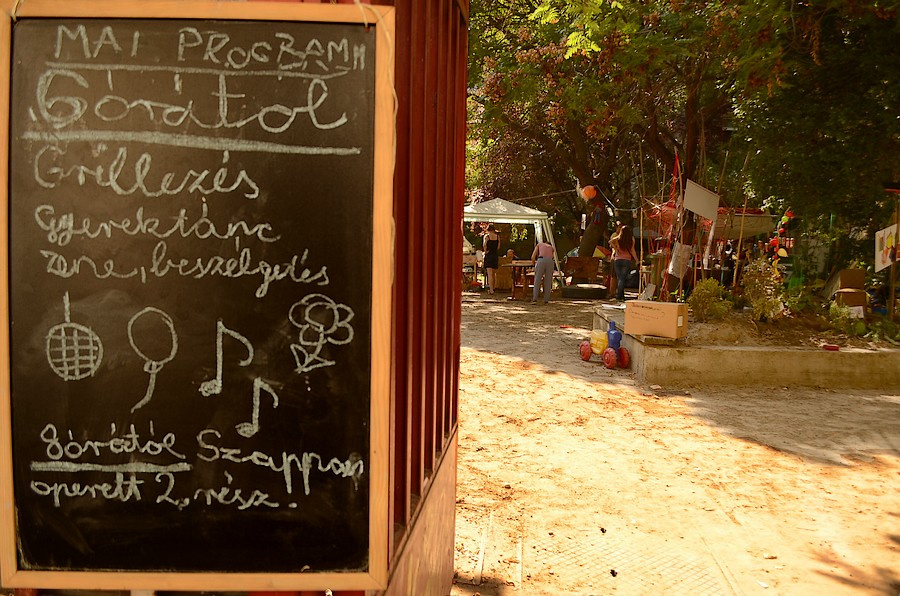 MAI PROGRAM
6órától
Grillezés
Gyerektánc
zene, beszélgetés
8órától Szappan
operett 2. rész!